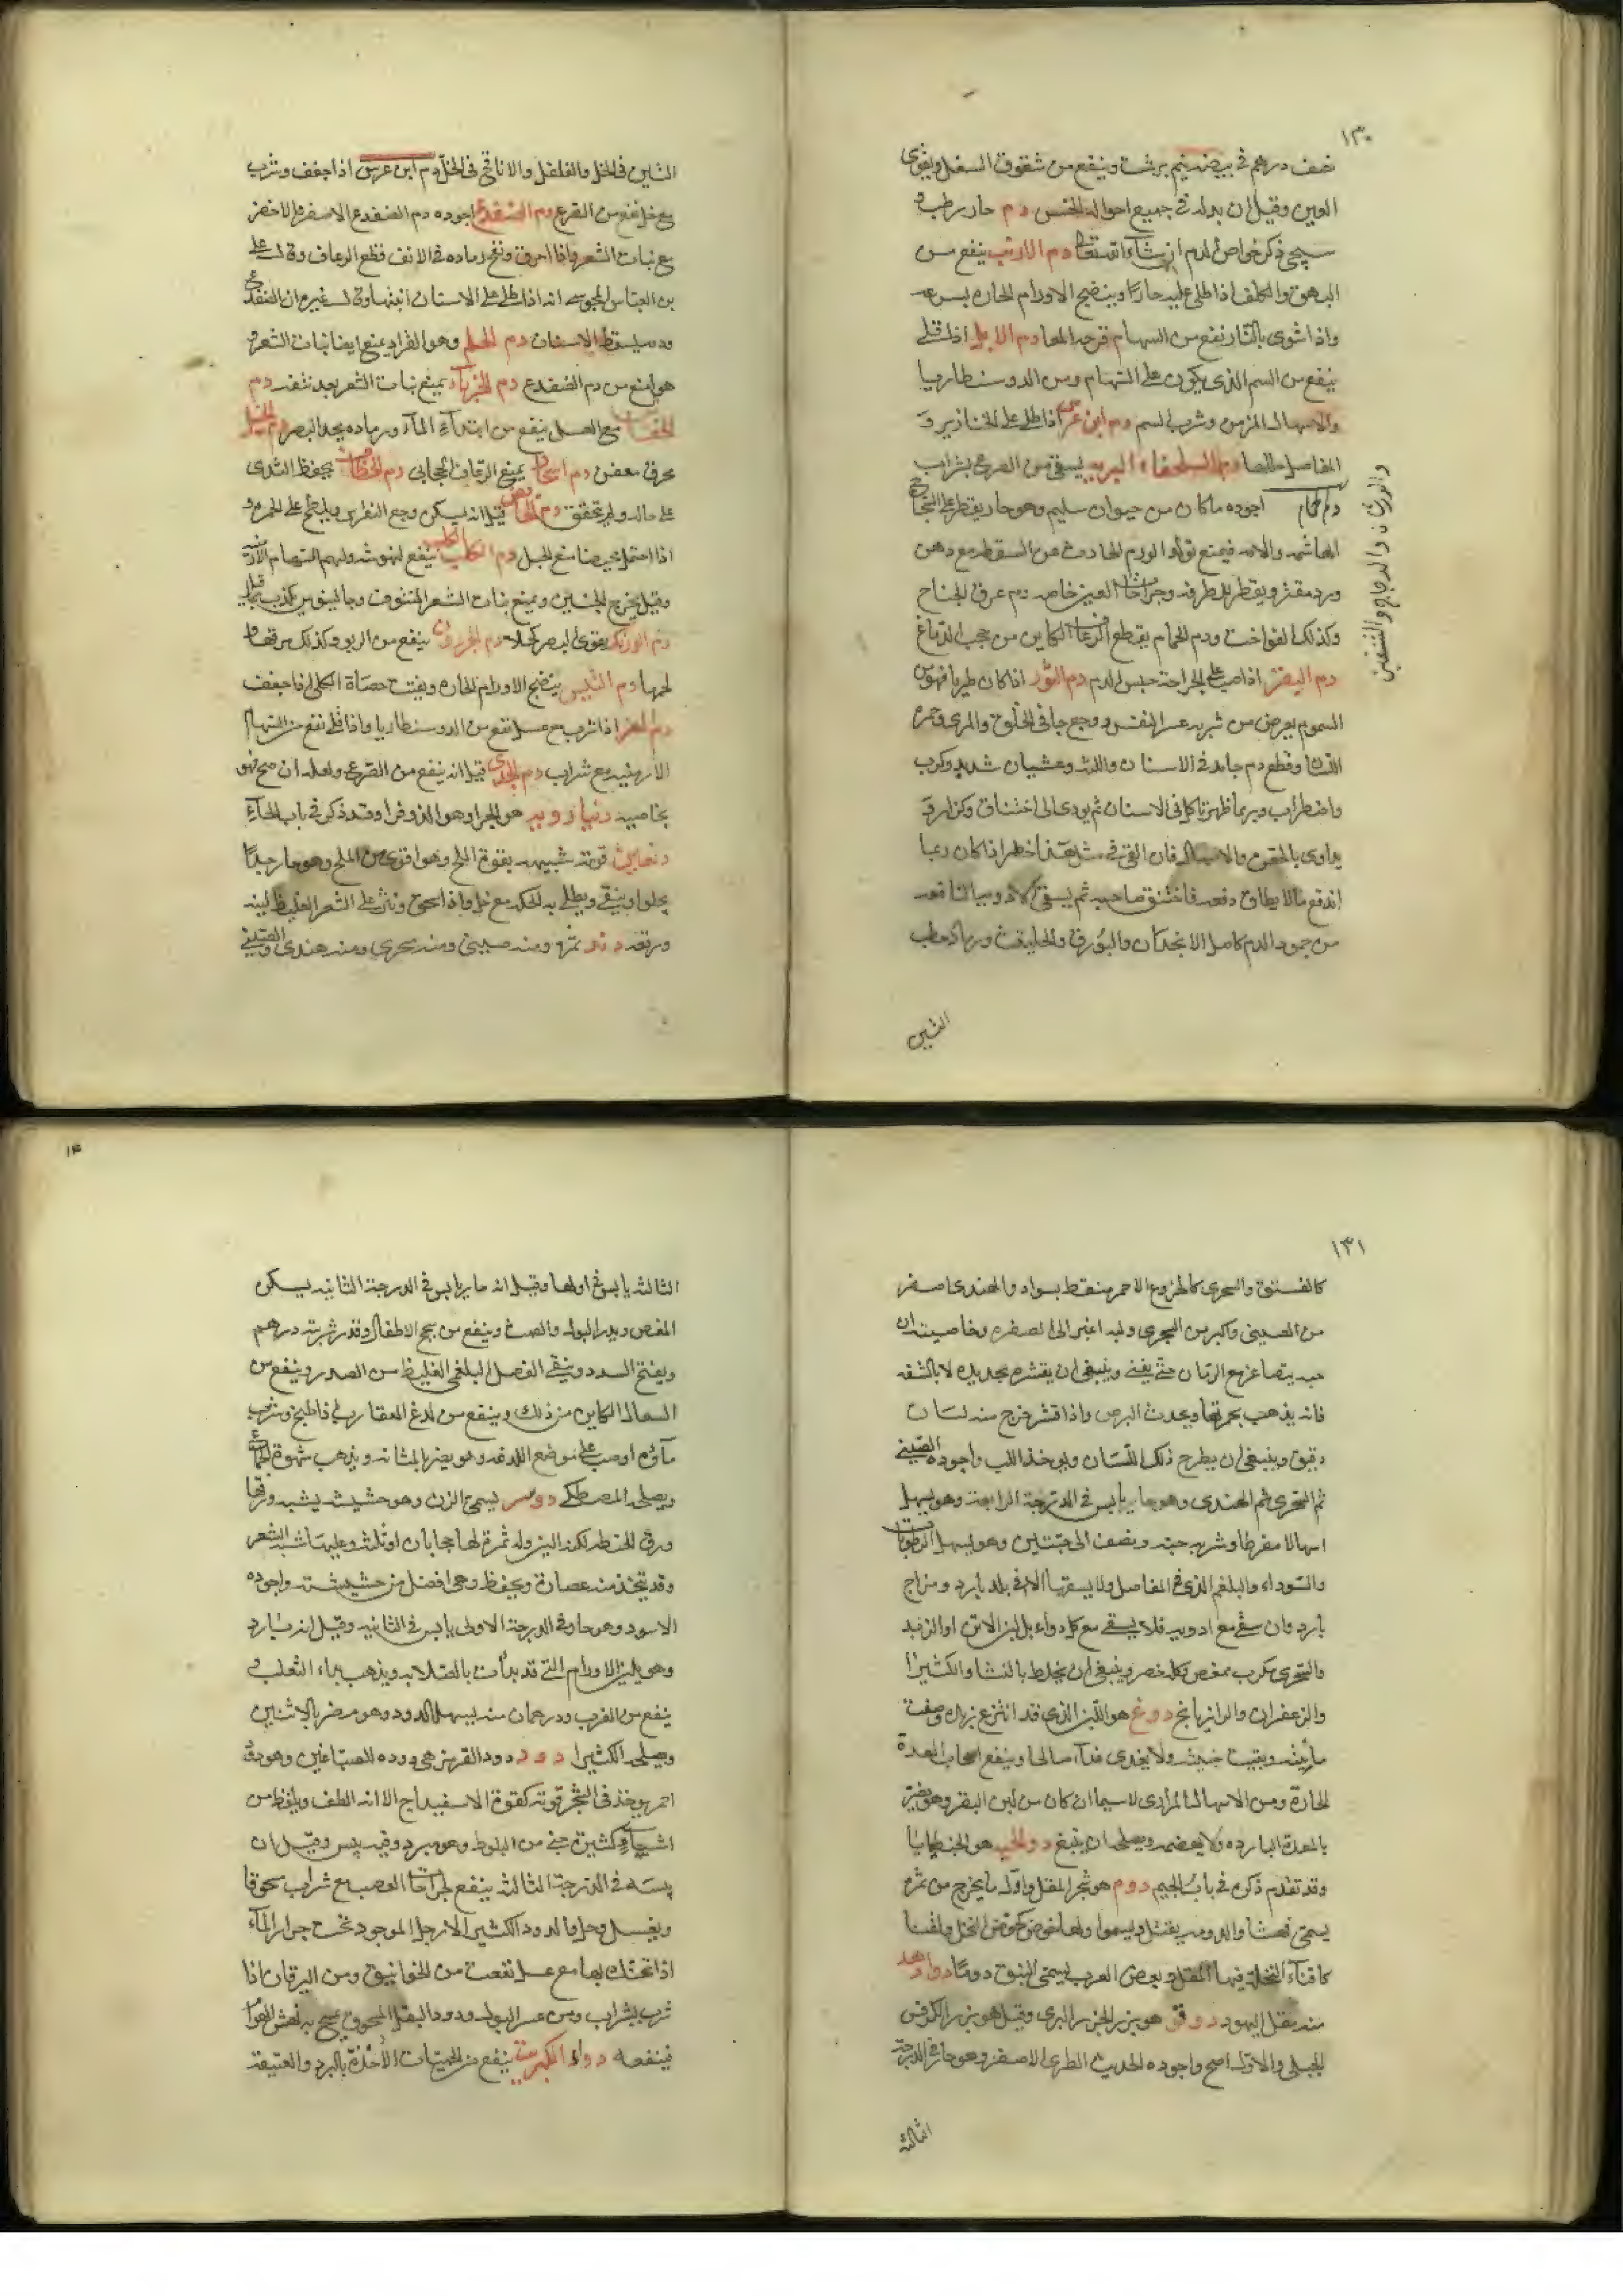 ١٣٠
نصف درهم في بيضة نيم برشت وينفع من شقوق السفل ويقوي
العين وقيل ان بدله في جميع احواله الخس دم حار رطب و
سيجئ ذكر خواص الدم ان شاء الله تعا دم الارنب ينفع من
البهق والكلف اذا طلي عليه حارا وينضج الاورام الحاره بسرعه
واذا شوى بالنار نفع من السهام قرحه المعا دم الايل اذا قلي
ينفع من السم الذي يكون على السهام ومن الدوسنطاريا
والاسهال المزمن وشرب السم دم ابن عرس اذا طلي على الخنازير و
المفاصل دم السلحفاه البريه يسقى من الصرع بشراب
دم حمام اجوده ما كان من حيوان سليم وهو حار يقطر على
فيمنع تولد الورم الحادث عن السقطه مع دهن
ورد مفتر ويقطر للطرفه وجراحات العين خاصه دم عرق الجناح
وكذلك الفواخت ودم الحمام يقطع الرعاف الكاين من حجب الدماغ
والورشان والدجاج والشفنين
دم البقر اذا صب على الجراحة حبس الدم دم الثور اذا كان طريا فهو من
السموم يعرض من شربه عسر النفس ووجع جانبي الحلق والمري وحمرة
اللسان وقطع دم جامد في الاسنان واللثه وغشيان شديد وكرب
واضطراب وربما ظهر تاكل في الاسنان ثم يودى الى اختناق وكزاز و
يداوى بالحقن والاسهال فان القئ في مثل هذا خطر اذا كان ربما
اندفع ما لا يطاق دفعه فاختنق صاحبه ثم يسقى الادويه النافعه
من جمود الدم كاصل الانجدان والبورق والحلتيت ورماد حطب
التين
التين في الخل والفلفل والاناقح في الخل دم ابن عرس اذا جفف وشرب
مع خل نفع من القرع دم الضفدع اجوده دم الضفدع الاصفر والاخضر
يمنع نبات الشعر واذا احرق ونفخ رماده في الانف قطع الرعاف وقال علي
بن العباس المجوسي انه اذا طلي على الاسنان انبتها وقال غيره ان الضفدع
ودمه يسقط الاسنان دم الحلم وهو القراد يمنع ايضا نبات الشعر و
هو امنع من دم الضفدع دم الحرباء يمنع نبات الشعر بعد نتفه دم
الخفاش مع العسل ينفع من ابتداء الماء ورماده يحد البصر دم الخيل
محرق معفن دم يمنع الرعاف الحجابي دم الخطاف يحفظ الثدى
على حاله ولم يتحقق دم الحائض قيل انه يسكن وجع النقرس ويلطخ على الحمره و
اذا احتمل حيضا منع الحبل دم الكلب الكلب ينفع لنهوشه
وقيل يخرج الجنين ويمنع نبات الشعر المنتوف وجالينوس يكذب
دم الورل يقوى البصر كحلا دم الحرذون ينفع من الربو وكذلك مرقتها و
لحمها دم التيس ينضج الاورام الحاره ويفتت حصاة الكلى اذا جفف
دم المعز اذا شرب مع عسل نفع من الدوسنطاريا واذا قلي نفع من السهام
الارمنيه مع شراب دم الجدى قيل انه ينفع من الصرع ولعله ان صح فهو
بخاصيه دنبا رويه هو الجزر وهو الدوقوا وقد ذكر في باب الحاء
قوته شبيهه بقوة الملح وهو اقوى من الملح وهو حار جدا
يجلو وينقي ويطلى به للحكه مع خل واذا سحق ونثر على الشعر الغليظ لينه
ورققه دند ثمره ومنه صيني ومنه سحرى ومنه هندى والصيني
١٣١
كالفستق والسحرى كالخروع الاحمر منقط بسواد والهندى اصغر
من الصيني واكبر من السحرى ولبه اغبر الى الصفره وخاصيته ان
حبه يتصاغر مع الزمان حتى يفنى وينبغي ان يقشره بحديده لا بالشفه
فانه يذهب بحمرتها ويحدث البرص واذا قشر خرج منه لسان
دقيق وينبغي ان يطرح ذلك اللسان ويوخذ اللب واجوده الصيني
ثم السحرى ثم الهندى وهو حار يابس في الدرجة الرابعة وهو يسهل
اسهالا مفرطا وشربه حبه ونصف الى حبتين وهو يسهل الرطوبات
والسوداء والبلغم الذي في المفاصل ولا يسقى الا في بلد بارد ومزاج
بارد وان سقي مع ادويه فلا يسقى مع كل دواء بل لبن الاتن او الزبد
والسحرى مكرب ممغص وكله مضر وينبغي ان يخلط بالنشا والكثيرا
والزعفران والرازيانج دوغ هو اللبن الذي قد انتزع زبده وصفت
مائيته وبقيت جبنيته ولا يغذى غذاء صالحا وينفع اصحاب المعدة
الحارة ومن الاسهال المرارى لاسيما ان كان من لبن البقر وهو يضر
بالمعدة البارده ولا يهضمه ويصلحه ان يتبع دو الحيه هو الجنطيانا
وقد تقدم ذكره في باب الجيم دوم هو شجر المقل واول ما يخرج من ثمره
يسمى والدوم يفتل ويسموا ولها خوص كخوص النخل واقنا
كاقناء النخلة فيها المقل وبعض العرب يسمى النبق دوما دوادهد
منه مقل اليهود دوقو هو بزر الجزر البرى وقيل هو بزر الكرفس
الجبلي والاول اصح واجوده الحديث الطرى الاصفر وهو حار في الدرجة
الثالثه
الثالثه يابس في اولها وقيل انه حار يابس في الدرجة الثانيه يسكن
المغص ويدر البول والطمث وينفع من سحج الاطفال وقدر شربته درهم
ويفتح السدد وينقي الفضل البلغمي الغليظ من الصدر وينفع من
السعال الكاين من ذلك وينفع من لدغ العقارب اذا طبخ وشرب
ماؤه او صب على موضع اللدغه وهو يضر بالمثانه ويذهب شهوة الجماع
ويصلحه المصطكى دوسر يسمى الزن وهو حشيشه يشبه ورقها
ورق الحنطه لكنه الين وله ثمرة لها حجابان او ثلثه وعليها شبه الشعر
وقد يتخذ منه عصارة ويحفظ وهي افضل من حشيشته واجوده
الاسود وهو حار في الدرجة الاولى يابس في الثانيه وقيل انه بارد
وهو يلين الاورام التي قد بدأت بالصلابه ويذهب بداء الثعلب و
ينفع من الغرب ودرهمان منه يسهل الدود وهو مضر بالانثيين
ويصلحه الكثيرا دود دود القرمز هي دوده للصباغين وهو دود
احمر يوخذ في الشجر قوته كقوة الاسفيداج الا انه الطف ويلقط من
اشجار كثيرة حتى من البلوط وهو مبرد وفيه يبس وقيل ان
يبسه في الدرجة الثالثه ينفع لجراحات العصب مع شراب مسحوقا
وبعسل وخل واما الدود الكثير الارجل الموجود تحت جرار الماء
اذا تحنك بها مع عسل نفعت من الخوانيق ومن اليرقان اذا
شرب بشراب ومن عسر البول ودود البقل المسحوق يمسح به نهش الهوام
فينفعه دواء الكبريت ينفع من الحميات الاخذة بالبرد والعتيقة